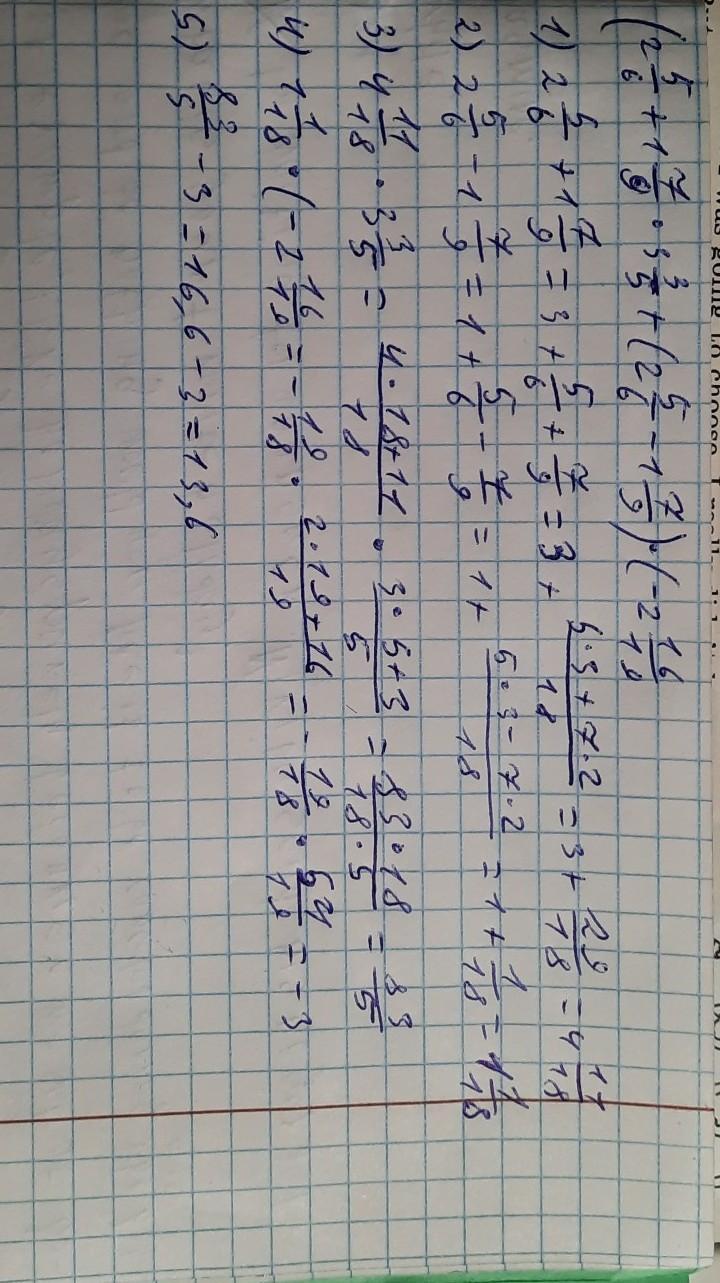 (2 5/6 + 1 7/9 · 3 3/5 + (2 5/6 - 1 7/9) · (-2 16/19
1) 2 5/6 + 1 7/9 = 3 + 5/6 + 7/9 = 3 + (5·3+7·2)/18 = 3 + 29/18 = 4 11/18
2) 2 5/6 - 1 7/9 = 1 + 5/6 - 7/9 = 1 + (5·3-7·2)/18 = 1 + 1/18 = 1 1/18
3) 4 11/18 · 3 3/5 = (4·18+11)/18 · (3·5+3)/5 = (83·18)/(18·5) = 83/5
4) 1 1/18 · (-2 16/19 = - 19/18 · (2·19+16)/19 = - 19/18 · 54/19 = -3
5) 83/5 - 3 = 16,6 - 3 = 13,6